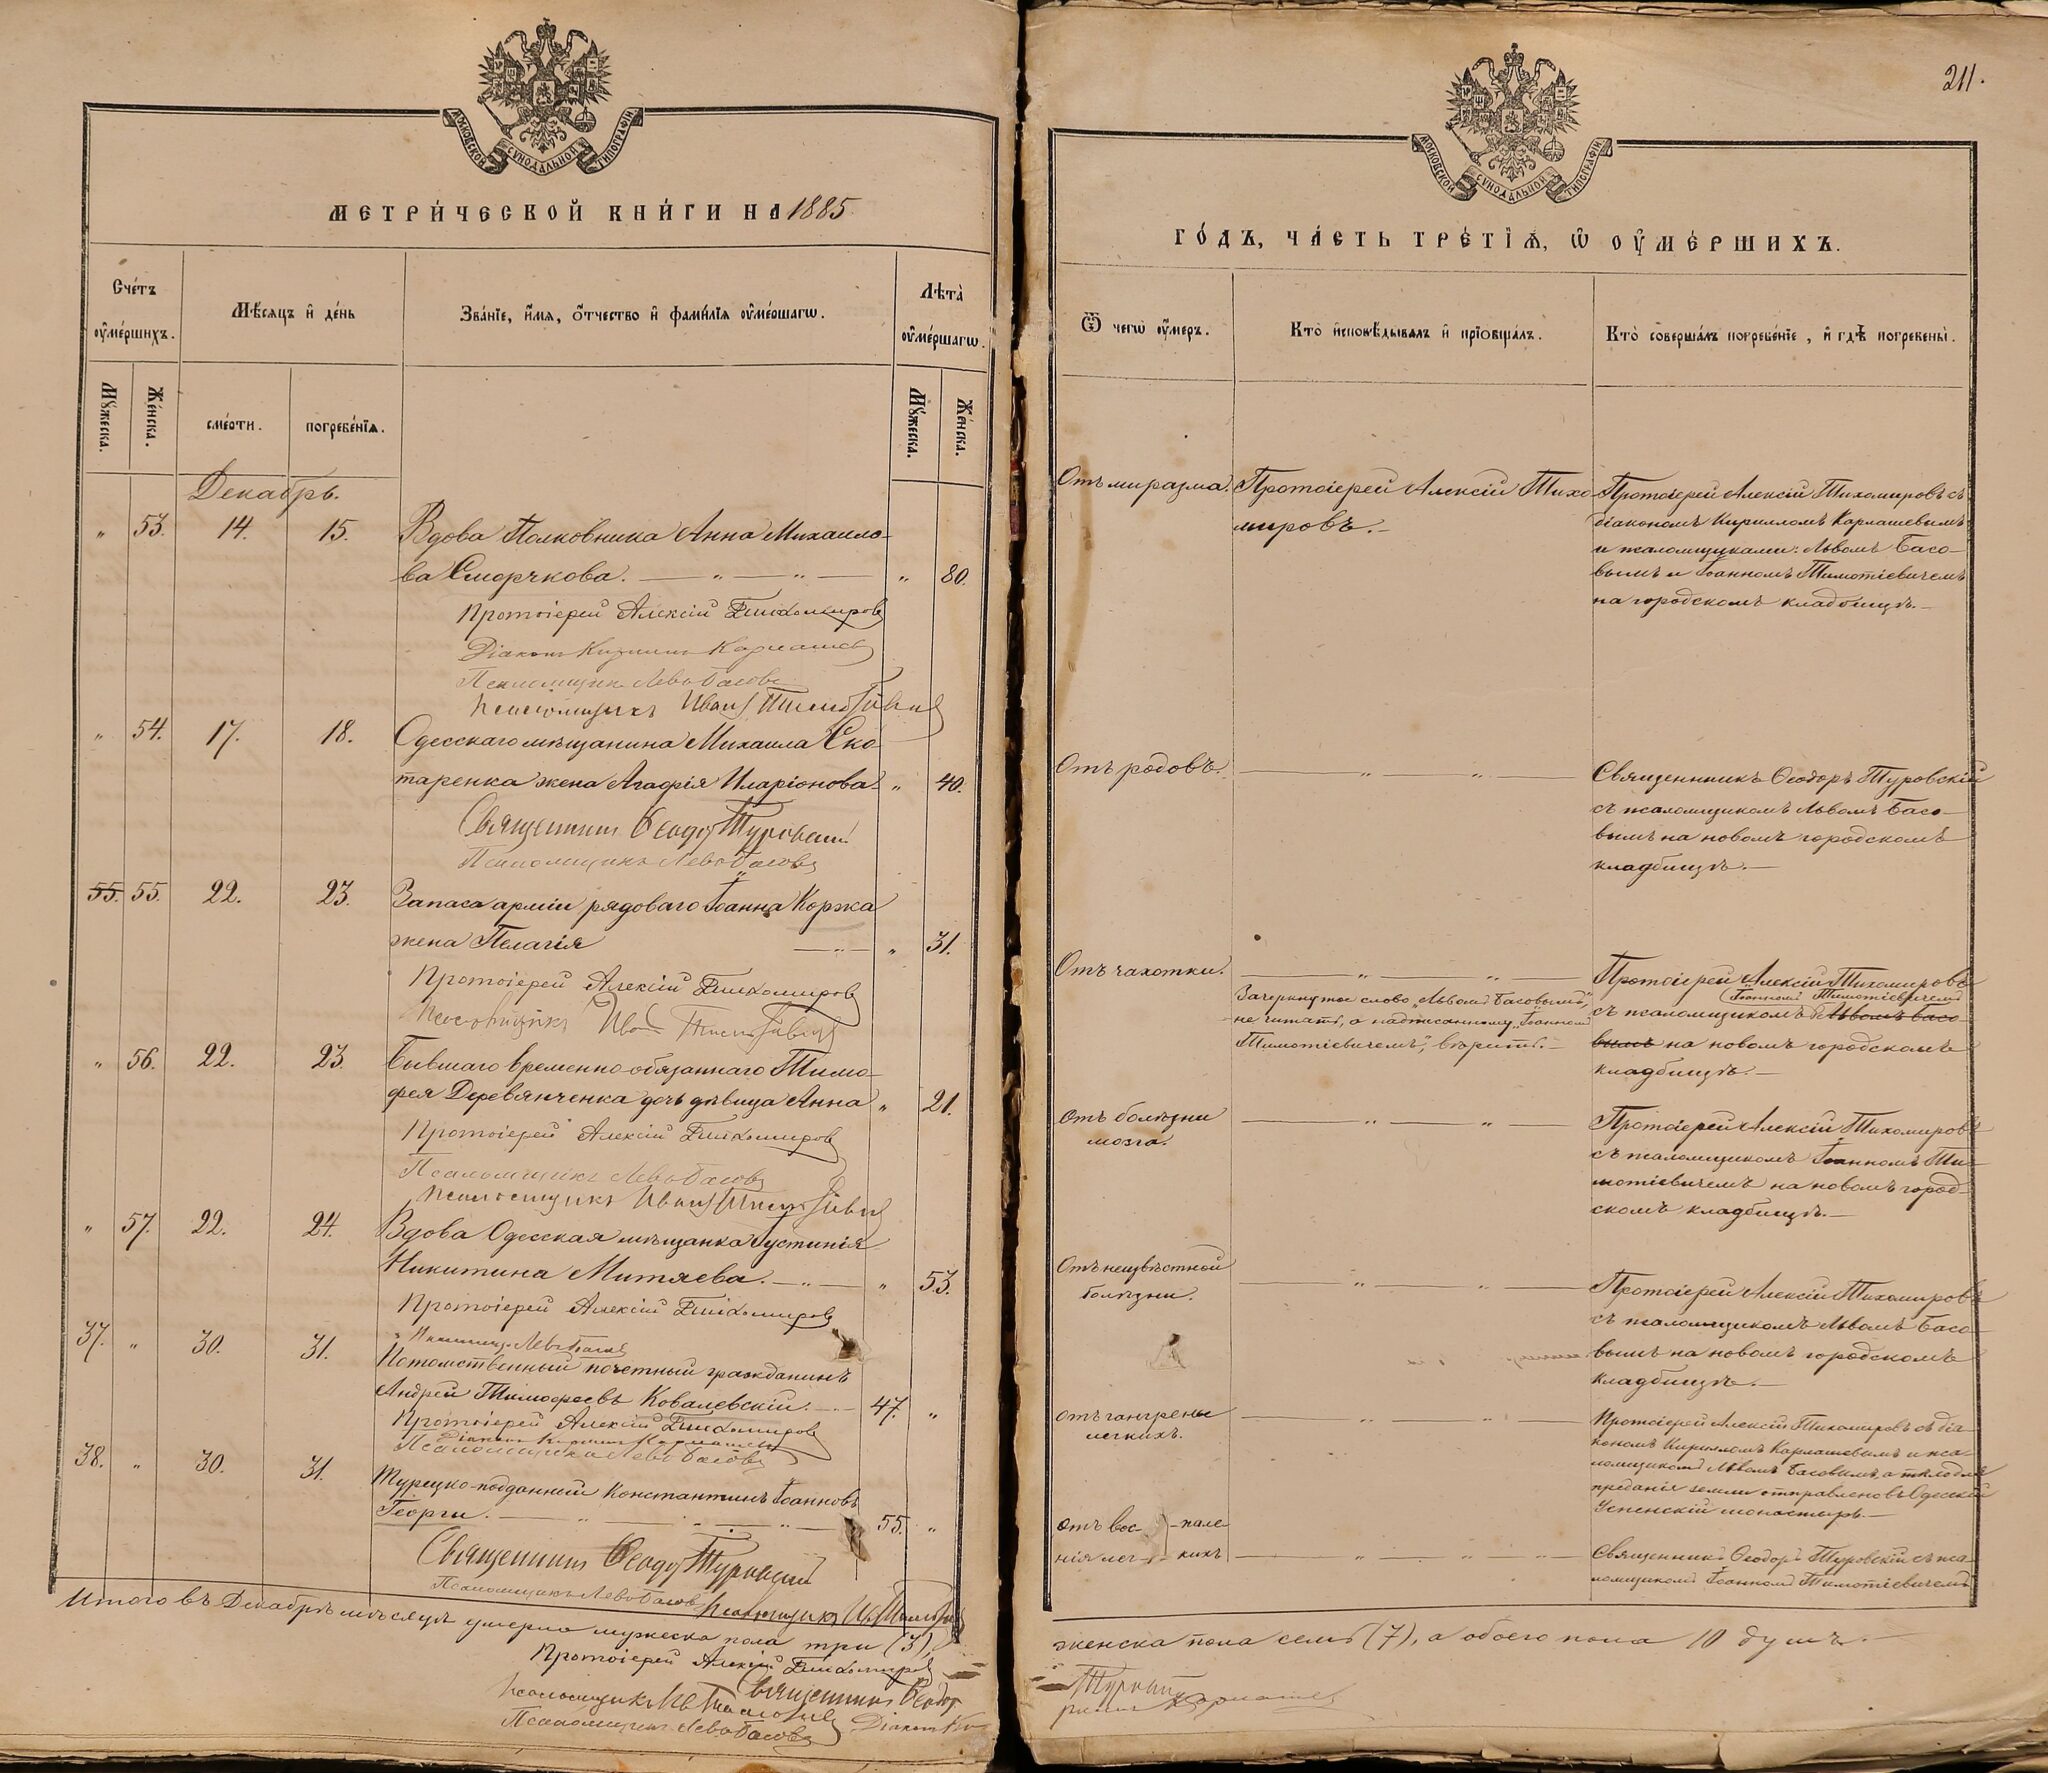 МОСКОВСКОЙ СѴНОДАЛЬНОЙ ТИПОГРАФІИ
МЕТРИ́ЧЕСКОЙ КНИ́ГИ НА 1885
Сче́тъ ᲂу҆ме́ршихъ.
Мѣ́сяцъ и҆ де́нь
Зва́нїе, и҆́мѧ, ѻ҆́тчество и҆ фами́лїѧ ᲂу҆ме́ршагѡ.
Лѣ́та ᲂу҆ме́ршагѡ.
Мꙋ́жеска.
Же́нска.
сме́рти.
погребе́нїѧ.
Мꙋ́жеска.
Же́нска.
Декабрь.
„ 53. 14. 15. Вдова Полковника Анна Михаило-
ва Сморчкова. — „ — „ — „ 80.
Протоіерей Алексій Тихомировъ
Діаконъ Кириллъ Карпашев
Псаломщикъ Левъ Басовъ
Псаломщикъ Иванъ Тимотіевич
„ 54. 17. 18. Одесскаго мѣщанина Михаила Ско-
таренка жена Агафія Иларіонова. „ 40.
Священникъ Ѳеодоръ Туровскій
Псаломщикъ Левъ Басовъ
55. 55. 22. 23. Запаса арміи рядоваго Іоанна Коржа
жена Пелагія — „ — „ 31.
Протоіерей Алексій Тихомировъ
Псаломщикъ Иванъ Тимотіевич
„ 56. 22. 23. Бывшаго временно-обязаннаго Тимо-
фея Деревянченка дочь дѣвица Анна „ 21.
Протоіерей Алексій Тихомировъ
Псаломщикъ Левъ Басовъ
Псаломщикъ Иванъ Тимотіевич
„ 57. 22. 24. Вдова Одесская мѣщанка Іустинія
Никитина Митяева. — „ — „ 53.
Протоіерей Алексій Тихомировъ
Псаломщ. Левъ Басовъ
37. „ 30. 31. Потомственный почетный гражданинъ
Андрей Тимофеевъ Ковалевскій. — 47. „
Протоіерей Алексій Тихомировъ
Діаконъ Кириллъ Карпашев
Псаломщикъ Левъ Басовъ
38. „ 30. 31. Турецко-подданный Константинъ Іоанновъ
Георги. — „ — „ — „ — 55. „
Священникъ Ѳеодоръ Туровскій
Псаломщикъ Левъ Басовъ Псаломщикъ Ив. Тимотіевич
Итого въ Декабрѣ мѣсяцѣ умерло мужеска пола три (3),
Протоіерей Алексій Тихомировъ
Священникъ Ѳеодор
Псаломщикъ Ив Тимотіевич
Псаломщикъ Левъ Басовъ Діаконъ Ки
211.
МОСКОВСКОЙ СѴНОДАЛЬНОЙ ТИПОГРАФІИ
ГО́ДЪ, ЧА́СТЬ ТРЕ́ТЇѦ, Ѡ҆ ОУ҆МЕ́РШИХЪ.
Ѿ чегѡ̀ ᲂу҆́меръ.
Кто̀ и҆сповѣ́дывалъ и҆ прїѻбща́лъ.
Кто̀ соверша́лъ погребе́нїе, и҆ гдѣ̀ погребены̀.
Отъ миразма. Протоіерей Алексій Тихо-
мировъ. —
Протоіерей Алексій Тихомировъ съ
діакономъ Кирилломъ Карпашевымъ
и псаломщиками: Львомъ Басо-
вымъ и Іоанномъ Тимотіевичемъ
на городскомъ кладбищѣ. —
Отъ родовъ. — „ — „ — Священникъ Ѳеодоръ Туровскій
съ псаломщикомъ Львомъ Басо-
вымъ на новомъ городскомъ
кладбищѣ. —
Отъ чахотки. — „ — „
Зачеркнутое слово „Львомъ Басовымъ“,
не читать, а надписанному „Іоанномъ
Тимотіевичемъ“, вѣрить. —
Протоіерей Алексій Тихомировъ
Іоанномъ Тимотіевичемъ
съ псаломщикомъ Львомъ Басо-
вымъ на новомъ городскомъ
кладбищѣ. —
Отъ болѣзни
мозга. — „ — „ —
Протоіерей Алексій Тихомировъ
съ псаломщикомъ Іоанномъ Ти-
мотіевичемъ на новомъ город-
скомъ кладбищѣ. —
Отъ неизвѣстной
болѣзни. — „ — „ —
Протоіерей Алексій Тихомировъ
съ псаломщикомъ Львомъ Басо-
вымъ на новомъ городскомъ
кладбищѣ. —
Отъ гангрены
легкихъ. — „ — „ —
Протоіерей Алексій Тихомировъ съ діа-
кономъ Кирилломъ Карпашевымъ и пса-
ломщикомъ Львомъ Басовымъ, а тѣло для
преданія земли отправлено въ Одесскій
Успенскій монастырь. —
Отъ вос- -пале-
нія лег- кихъ — „ — „ —
Священникъ Ѳеодоръ Туровскій съ пса-
ломщикомъ Іоанномъ Тимотіевичемъ
женска пола семь (7), а обоего пола 10 душъ. —
Туровскій
риллъ Карпашев